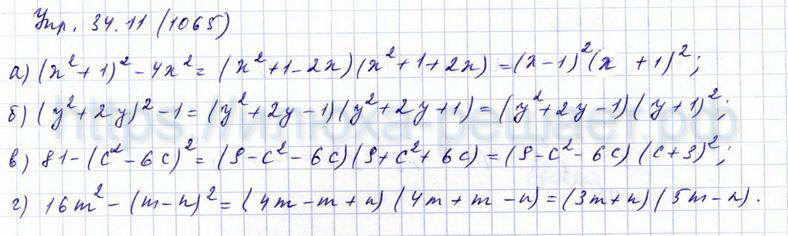 Упр. 34.11 (1065)
а) (x²+1)² - 4x² = (x²+1-2x)(x²+1+2x) = (x-1)²(x +1)²;
б) (y²+2y)² - 1 = (y²+2y-1)(y²+2y+1) = (y²+2y-1)(y+1)²;
в) 81-(c²-6c)² = (9-c²-6c)(9+c²+6c) = (9-c²-6c)(c+3)²;
г) 16m² - (m-n)² = (4m-m+n)(4m+m-n) = (3m+n)(5m-n).